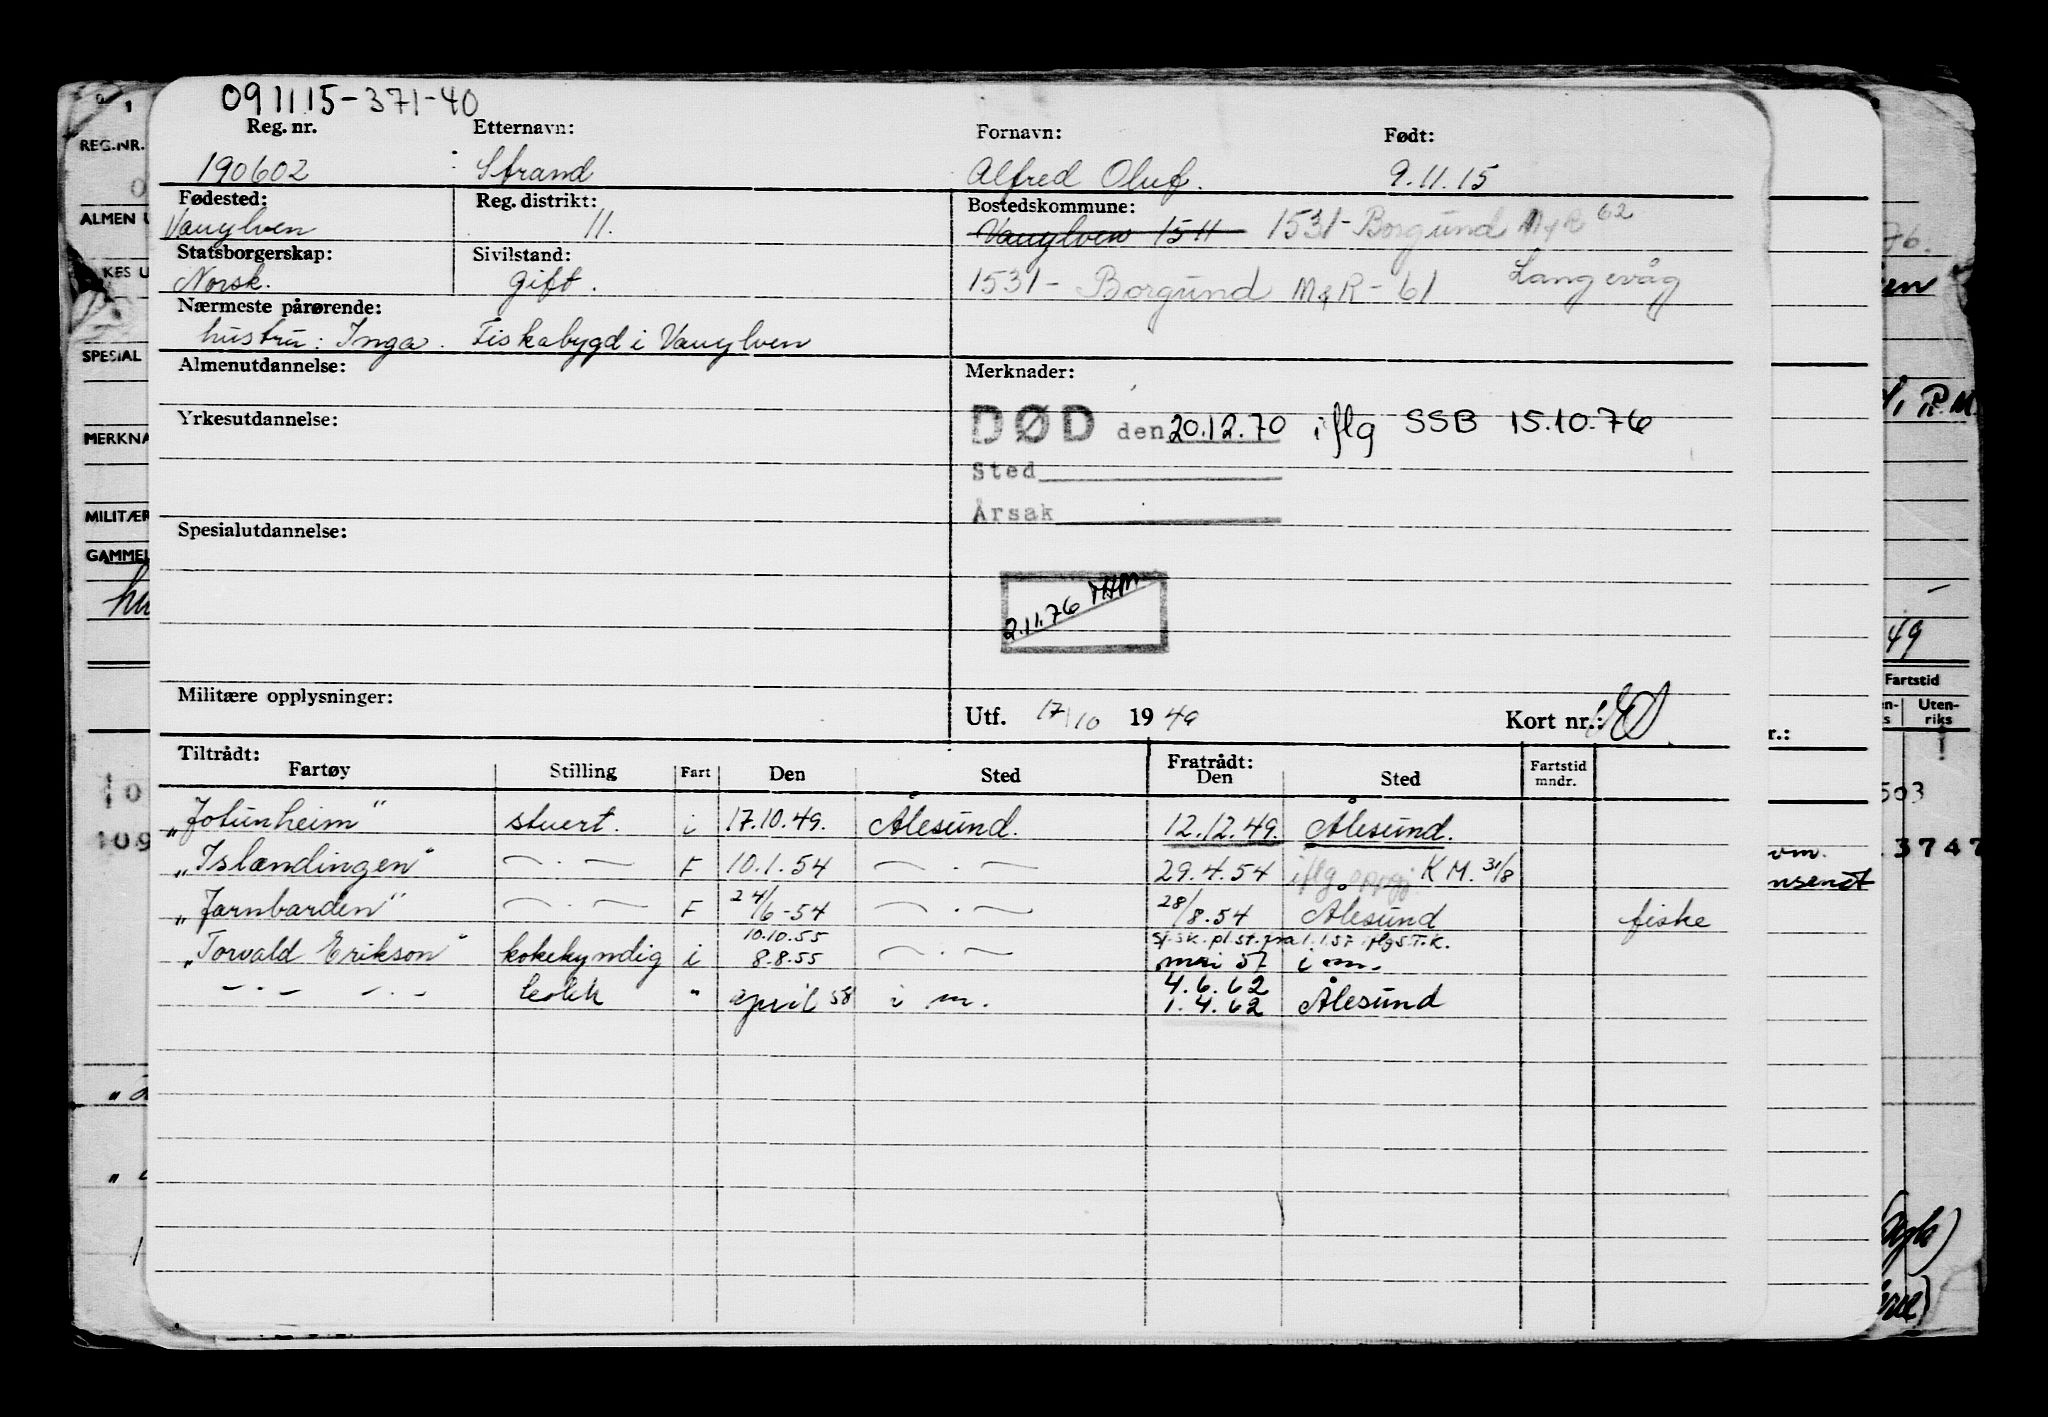 091115-371-40
Reg. nr. Etternavn: Fornavn: Født:
190602 Strand Alfred Oluf. 9.11.15
Fødested: Reg. distrikt: Bostedskommune:
Vanylven 11. Vanylven 1511 1531-Borgund M&R 62
Statsborgerskap: Sivilstand:
Norsk. gift. 1531- Borgund M&R-61 Langevåg
Nærmeste pårørende:
hustru: Inga. Fiskabygd i Vanylven
Almenutdannelse: Merknader:
DØD den 20.12.70 iflg SSB 15.10.76
Yrkesutdannelse:
Sted
Årsak
Spesialutdannelse:
2.11.76
Militære opplysninger:
Utf. 17/10 1949 Kort nr.:
Tiltrådt: Fratrådt:
Fartøy Stilling Fart Den Sted Den Sted Fartstid mndr.
"Jotunheim" stuert. i 17.10.49. Ålesund. 12.12.49. Ålesund.
"Islændingen" —·— F 10.1.54 —·— 29.4.54 iflg oppgj. K M. 31/8
"Jarnbarden" —·— F 24/6-54 —·— 28/8.54 Ålesund fiske
10.10.55 sj.sk. pl.st. fra 1.1.57 iflg S.T.K.
"Torvald Erikson" kokekyndig i 8.8.55 —·— mai 57 i m.
4.6.62
—·— —·— kokk " april 58 i m. 1.4.62 Ålesund
REG.NR.
ALMEN U
KES U
SPESIAL
MERKNA
MILITÆR
GAMMEL
49
Fartstid
Uten-
riks
r.:
503
3747
109